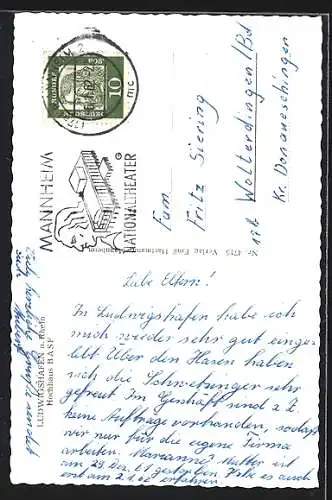 MANNHEIM
NATIONALTHEATER
10
Fam.
Fritz Siering
Wolterdingen/Bd
Kr. Donaueschingen
Nr. 4715 Verlag Emil Hartmann, Mannheim
LUDWIGSHAFEN a. Rhein
Hochhaus BASF
Liebe Eltern!
In Ludwigshafen habe ich
mich wieder sehr gut einge-
lebt. Über den Hasen haben
sich die Schwetzinger sehr
gefreut. Im Geschäft sind z. Z.
keine Aufträge vorhanden, sodaß
wir nur für die eigene Firma
arbeiten. Mariannes Mutter ist
am 29. Dez. 61 gestorben. Habe es auch
erst am 2.1.62 erfahren